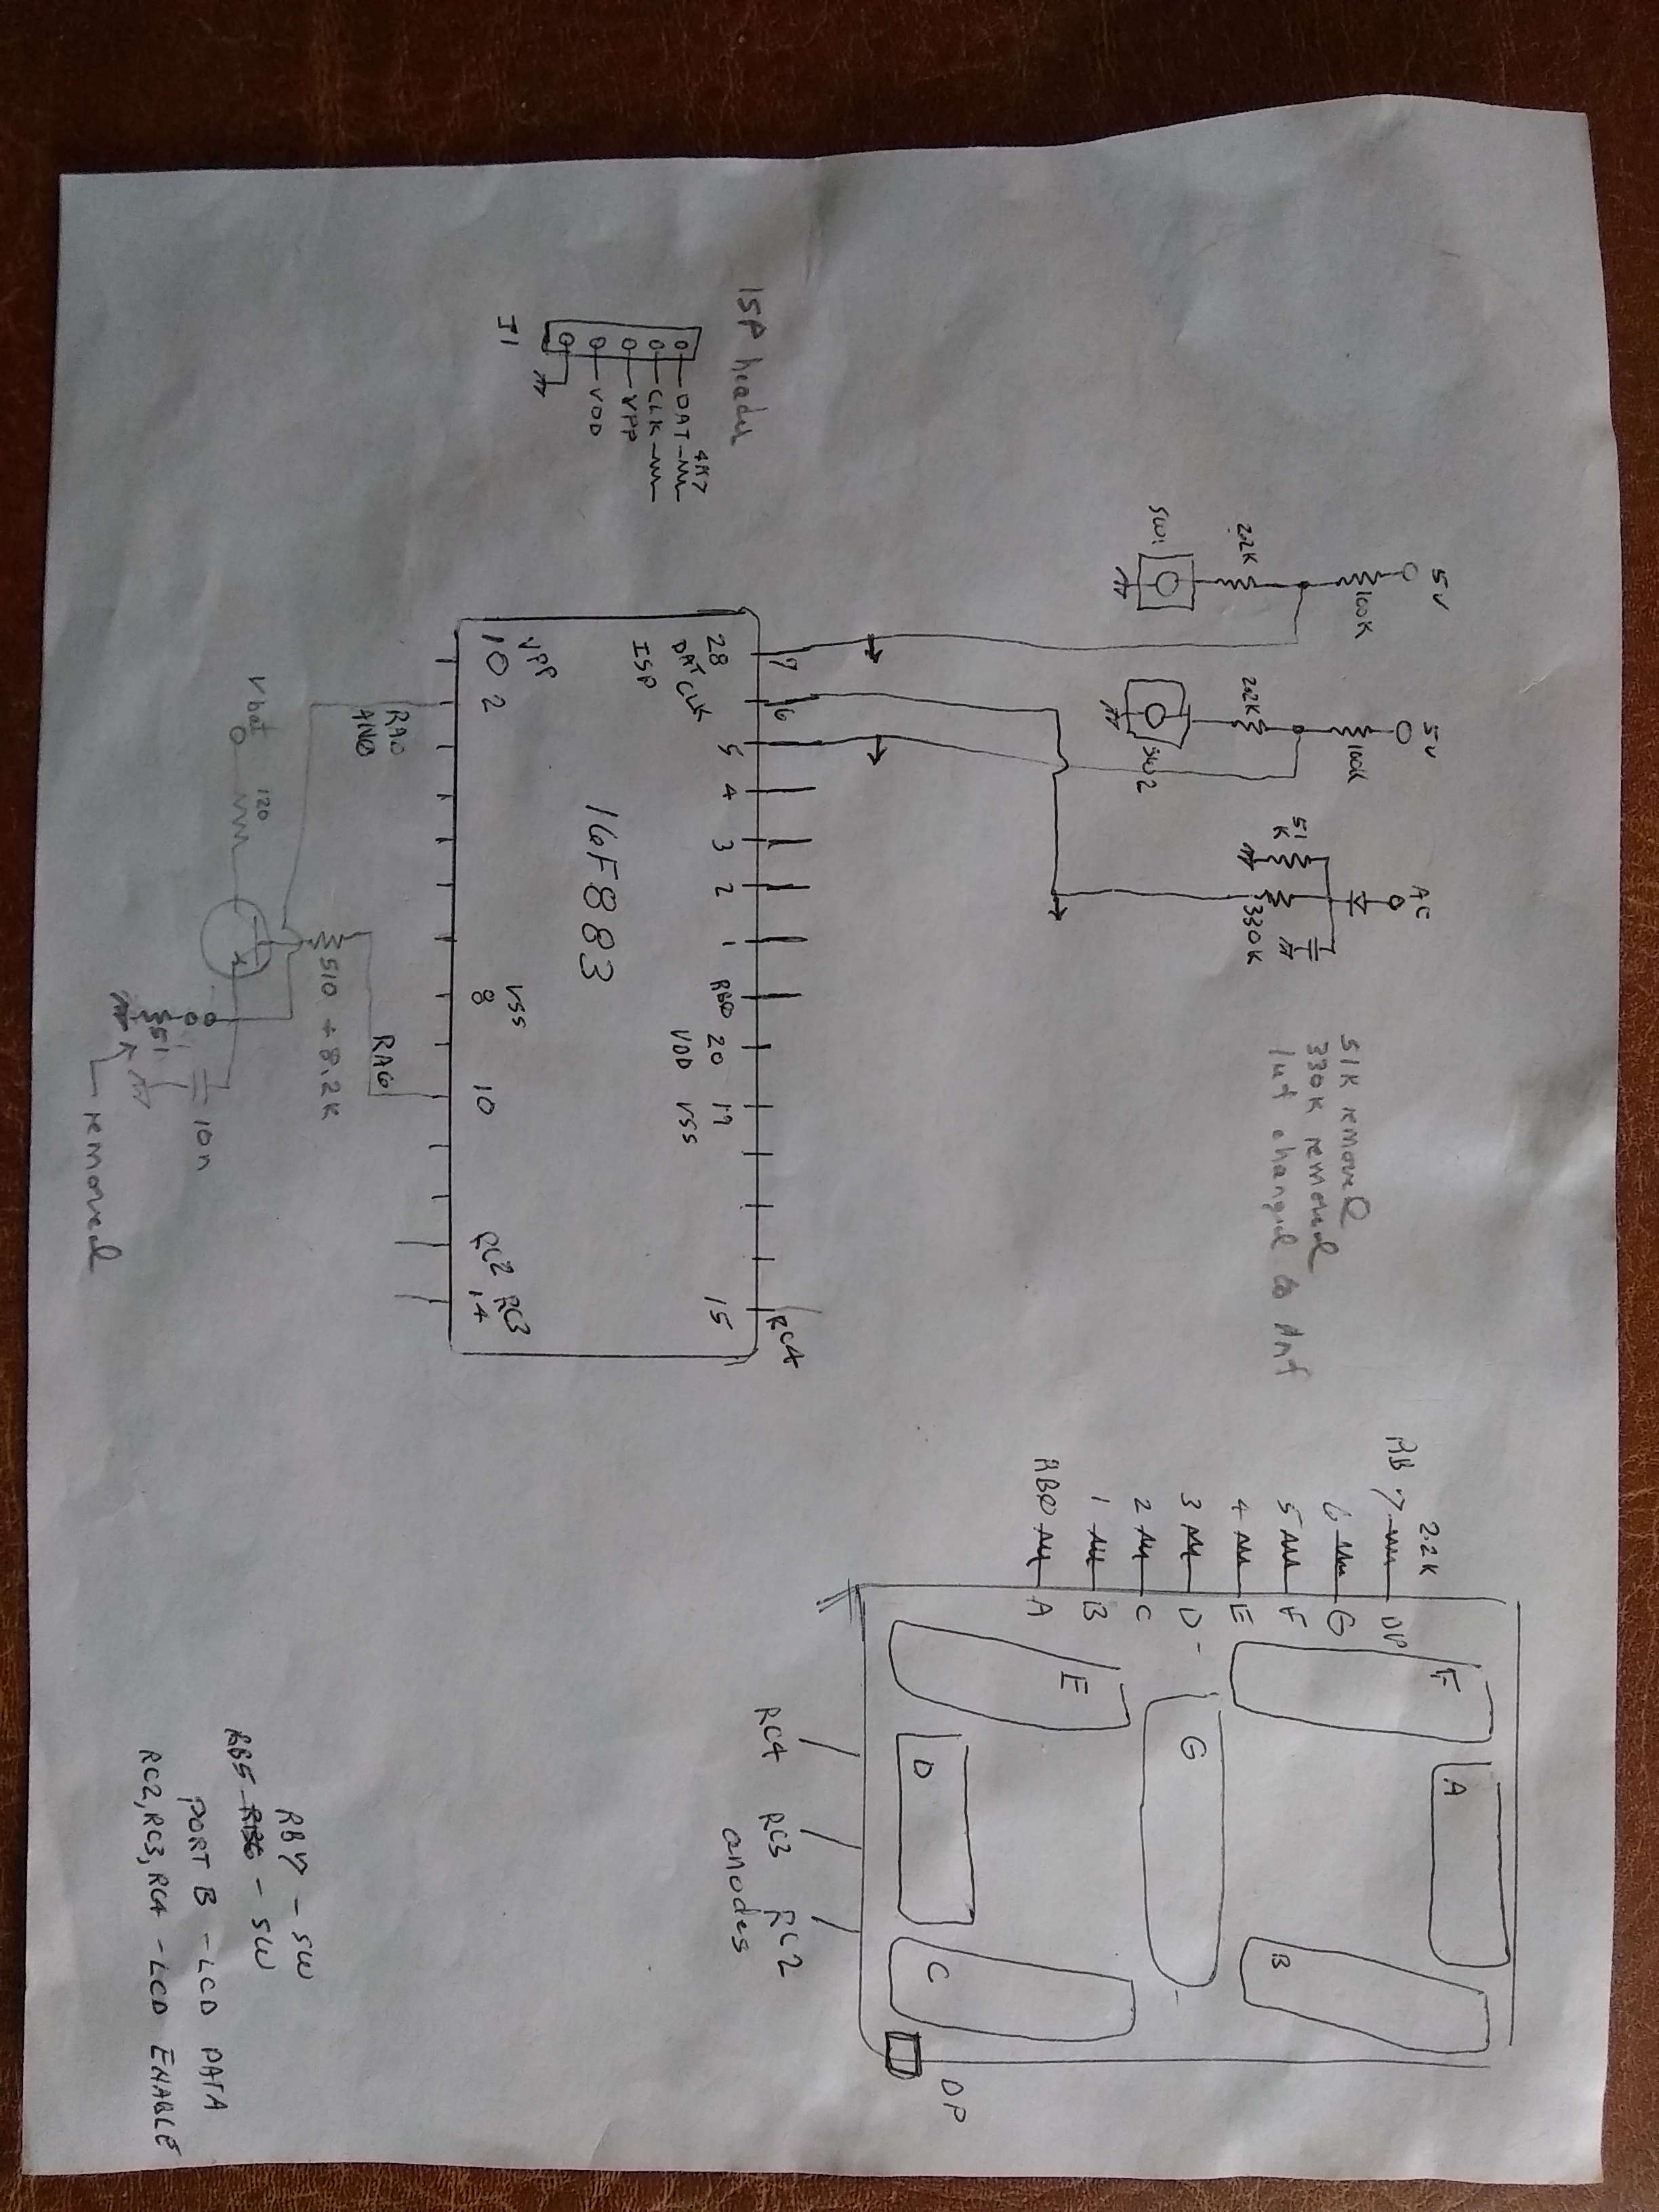 5V
5V
AC
100K
100K
51
K
330K
2.2K
2.2K
SW1
SW2
51K removed
330K removed
1uf changed to 1nf
2.2K
RB 7 DP
6 G
5 F
4 E
3 D
2 C
1 B
RB0 A
F
A
B
G
E
D
C
DP
RC4 RC3 RC2
anodes
ISP header
DAT 4K7
CLK
VPP
VDD
J1
7 6 RC4
28 5 4 3 2 1 RB0 20 19 15
DAT CLK VDD VSS
ISP
16F883
VPP VSS RC2 RC3
10 2 8 10 14
RA0
AN0
RA6
510 + 8.2K
Vbat 120
10n
51
removed
RB7 - SW
RB5 RB6 - SW
PORT B - LCD DATA
RC2, RC3, RC4 - LCD ENABLE